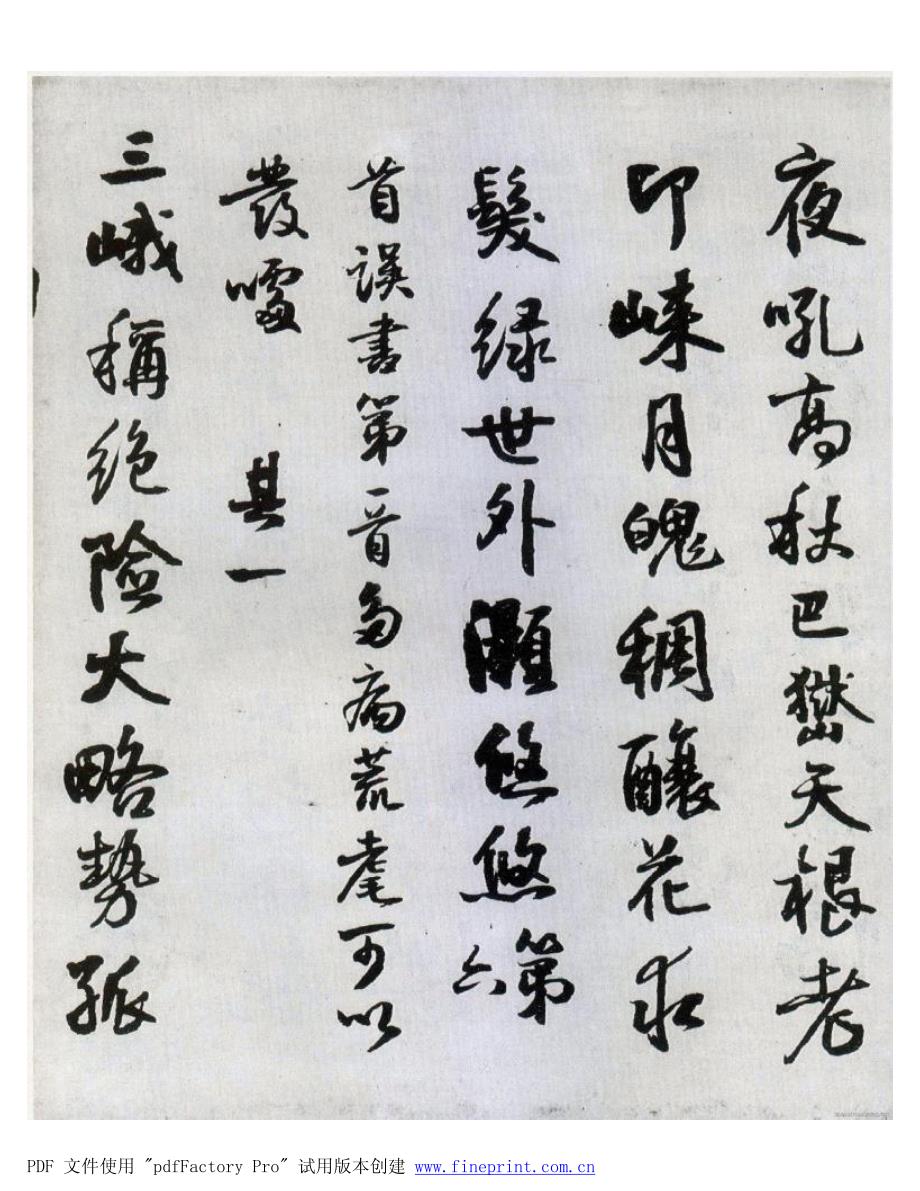 夜吼高秋巴嶽天根老
印崍月魄稠釀花求
鬓绿世外瀕悠悠第六
首誤書第一首多病荒耄可以
發噱 其一
三峨稱絶險大略勢孤
PDF 文件使用 "pdfFactory Pro" 试用版本创建 www.fineprint.com.cn